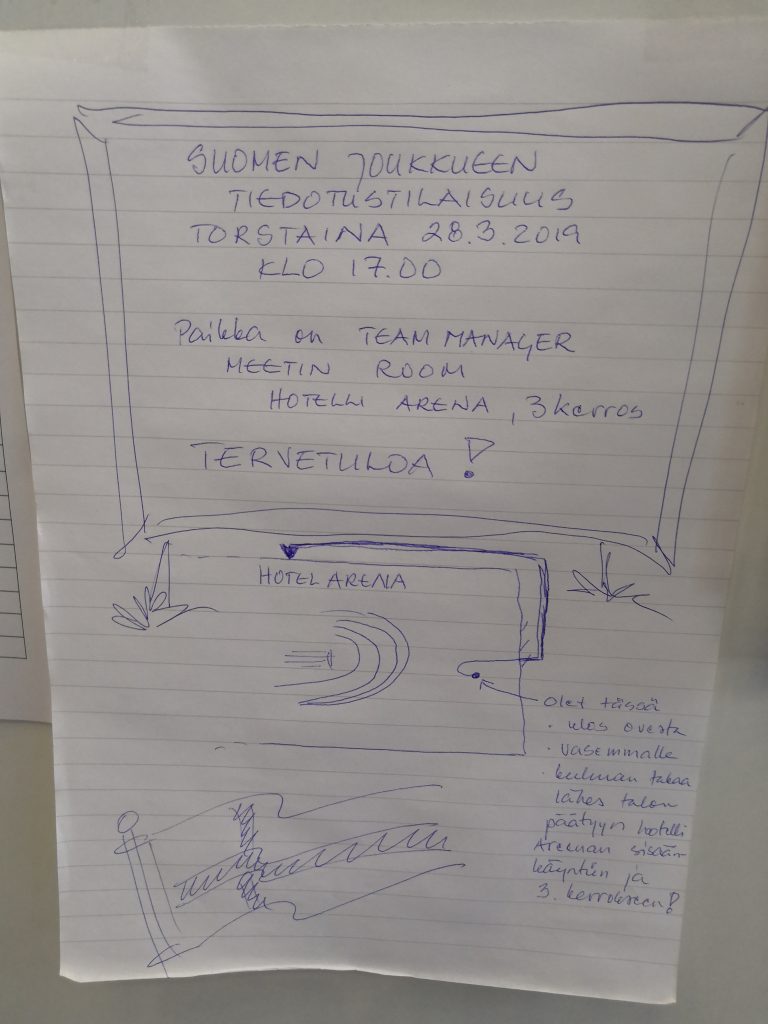 SUOMEN JOUKKUEEN
TIEDOTUSTILAISUUS
TORSTAINA 28.3.2019
KLO 17.00
Paikka on TEAM MANAGER
MEETIN ROOM
HOTELLI ARENA, 3 kerros
TERVETULOA !
HOTEL ARENA
Olet tässä
· ulos ovesta
· vasemmalle
· kulman takaa
lähes talon
päätyyn hotelli
Areenan sisään-
käyntiin ja
3. kerrokseen!